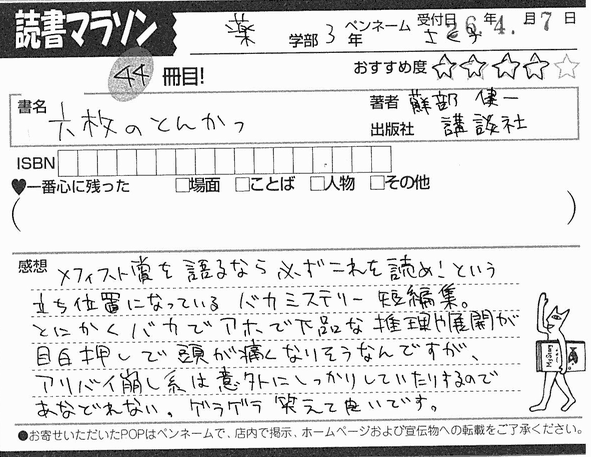 読書マラソン 薬 学部 3 年 ペンネーム さくら 受付日 26年 4.月 7日
44 冊目! おすすめ度 ☆☆☆☆☆
書名 六枚のとんかつ 著者 蘇部 健一
出版社 講談社
ISBN
♥一番心に残った □場面 □ことば □人物 □その他
( )
感想 メフィスト賞を語るなら必ずこれを読め!という
立ち位置になっているバカミステリー短編集。
とにかくバカでアホで下品な推理や展開が
目白押しで頭が痛くなりそうなんですが、
アリバイ崩し系は意外にしっかりしていたりするので
あなどれない。ゲラゲラ笑えて良いです。
●お寄せいただいたPOPはペンネームで、店内で掲示、ホームページおよび宣伝物への転載をご了承ください。